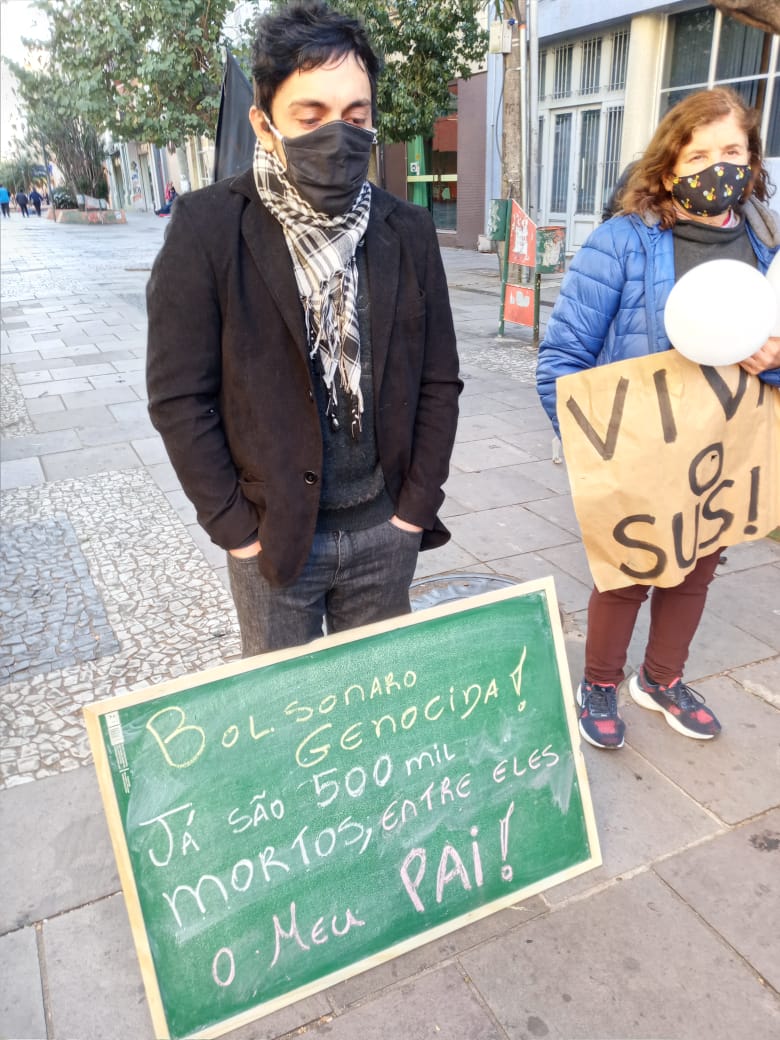 BOLSONARO
GENOCIDA!
JÁ SÃO 500 mil
MORTOS, ENTRE ELES
O MEU PAI!
VIVA
O
SUS!